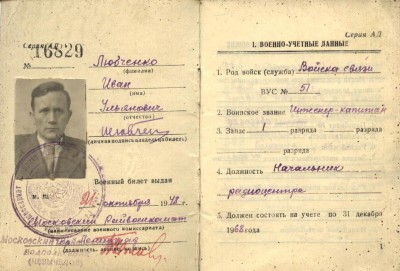 Серия АД
№ 16829
Любченко
(фамилия)
Иван
(имя)
Ульянович
(отчество)
(личная подпись владельца билета)
Военный билет выдан
21 октября 1948 г.
Московский Райвоенкомат
(наименование военного комиссариата)
Серия АД
I. ВОЕННО-УЧЕТНЫЕ ДАННЫЕ
1. Род войск (служба) Войска связи
ВУС № 51
2. Воинское звание Инженер-капитан
3. Запас 1 разряда разряда
разряда
4. Должность Начальник
радиоцентра
5. Должен состоять на учете по 31 декабря
1968 года
1